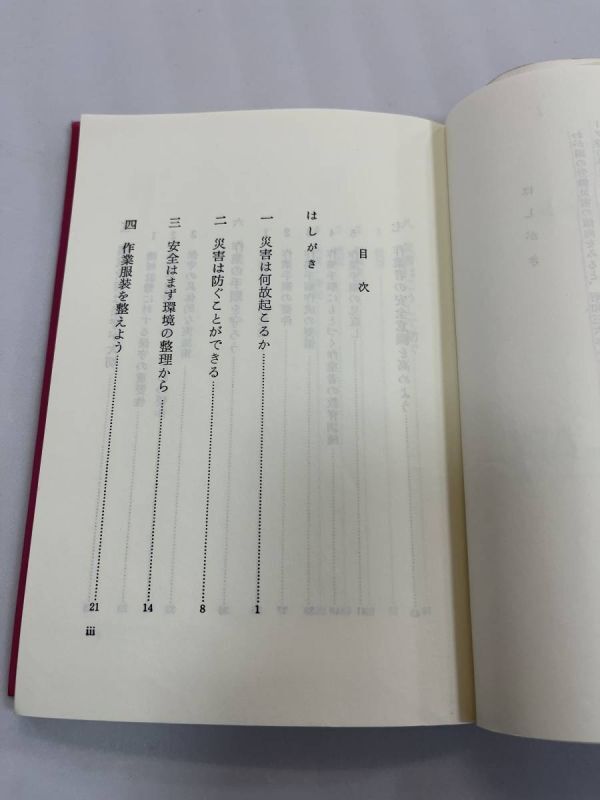 目次
はしがき
一 災害は何故起こるか……1
二 災害は防ぐことができる……8
三 安全はまず環境の整理から……14
四 作業服装を整えよう……21
iii